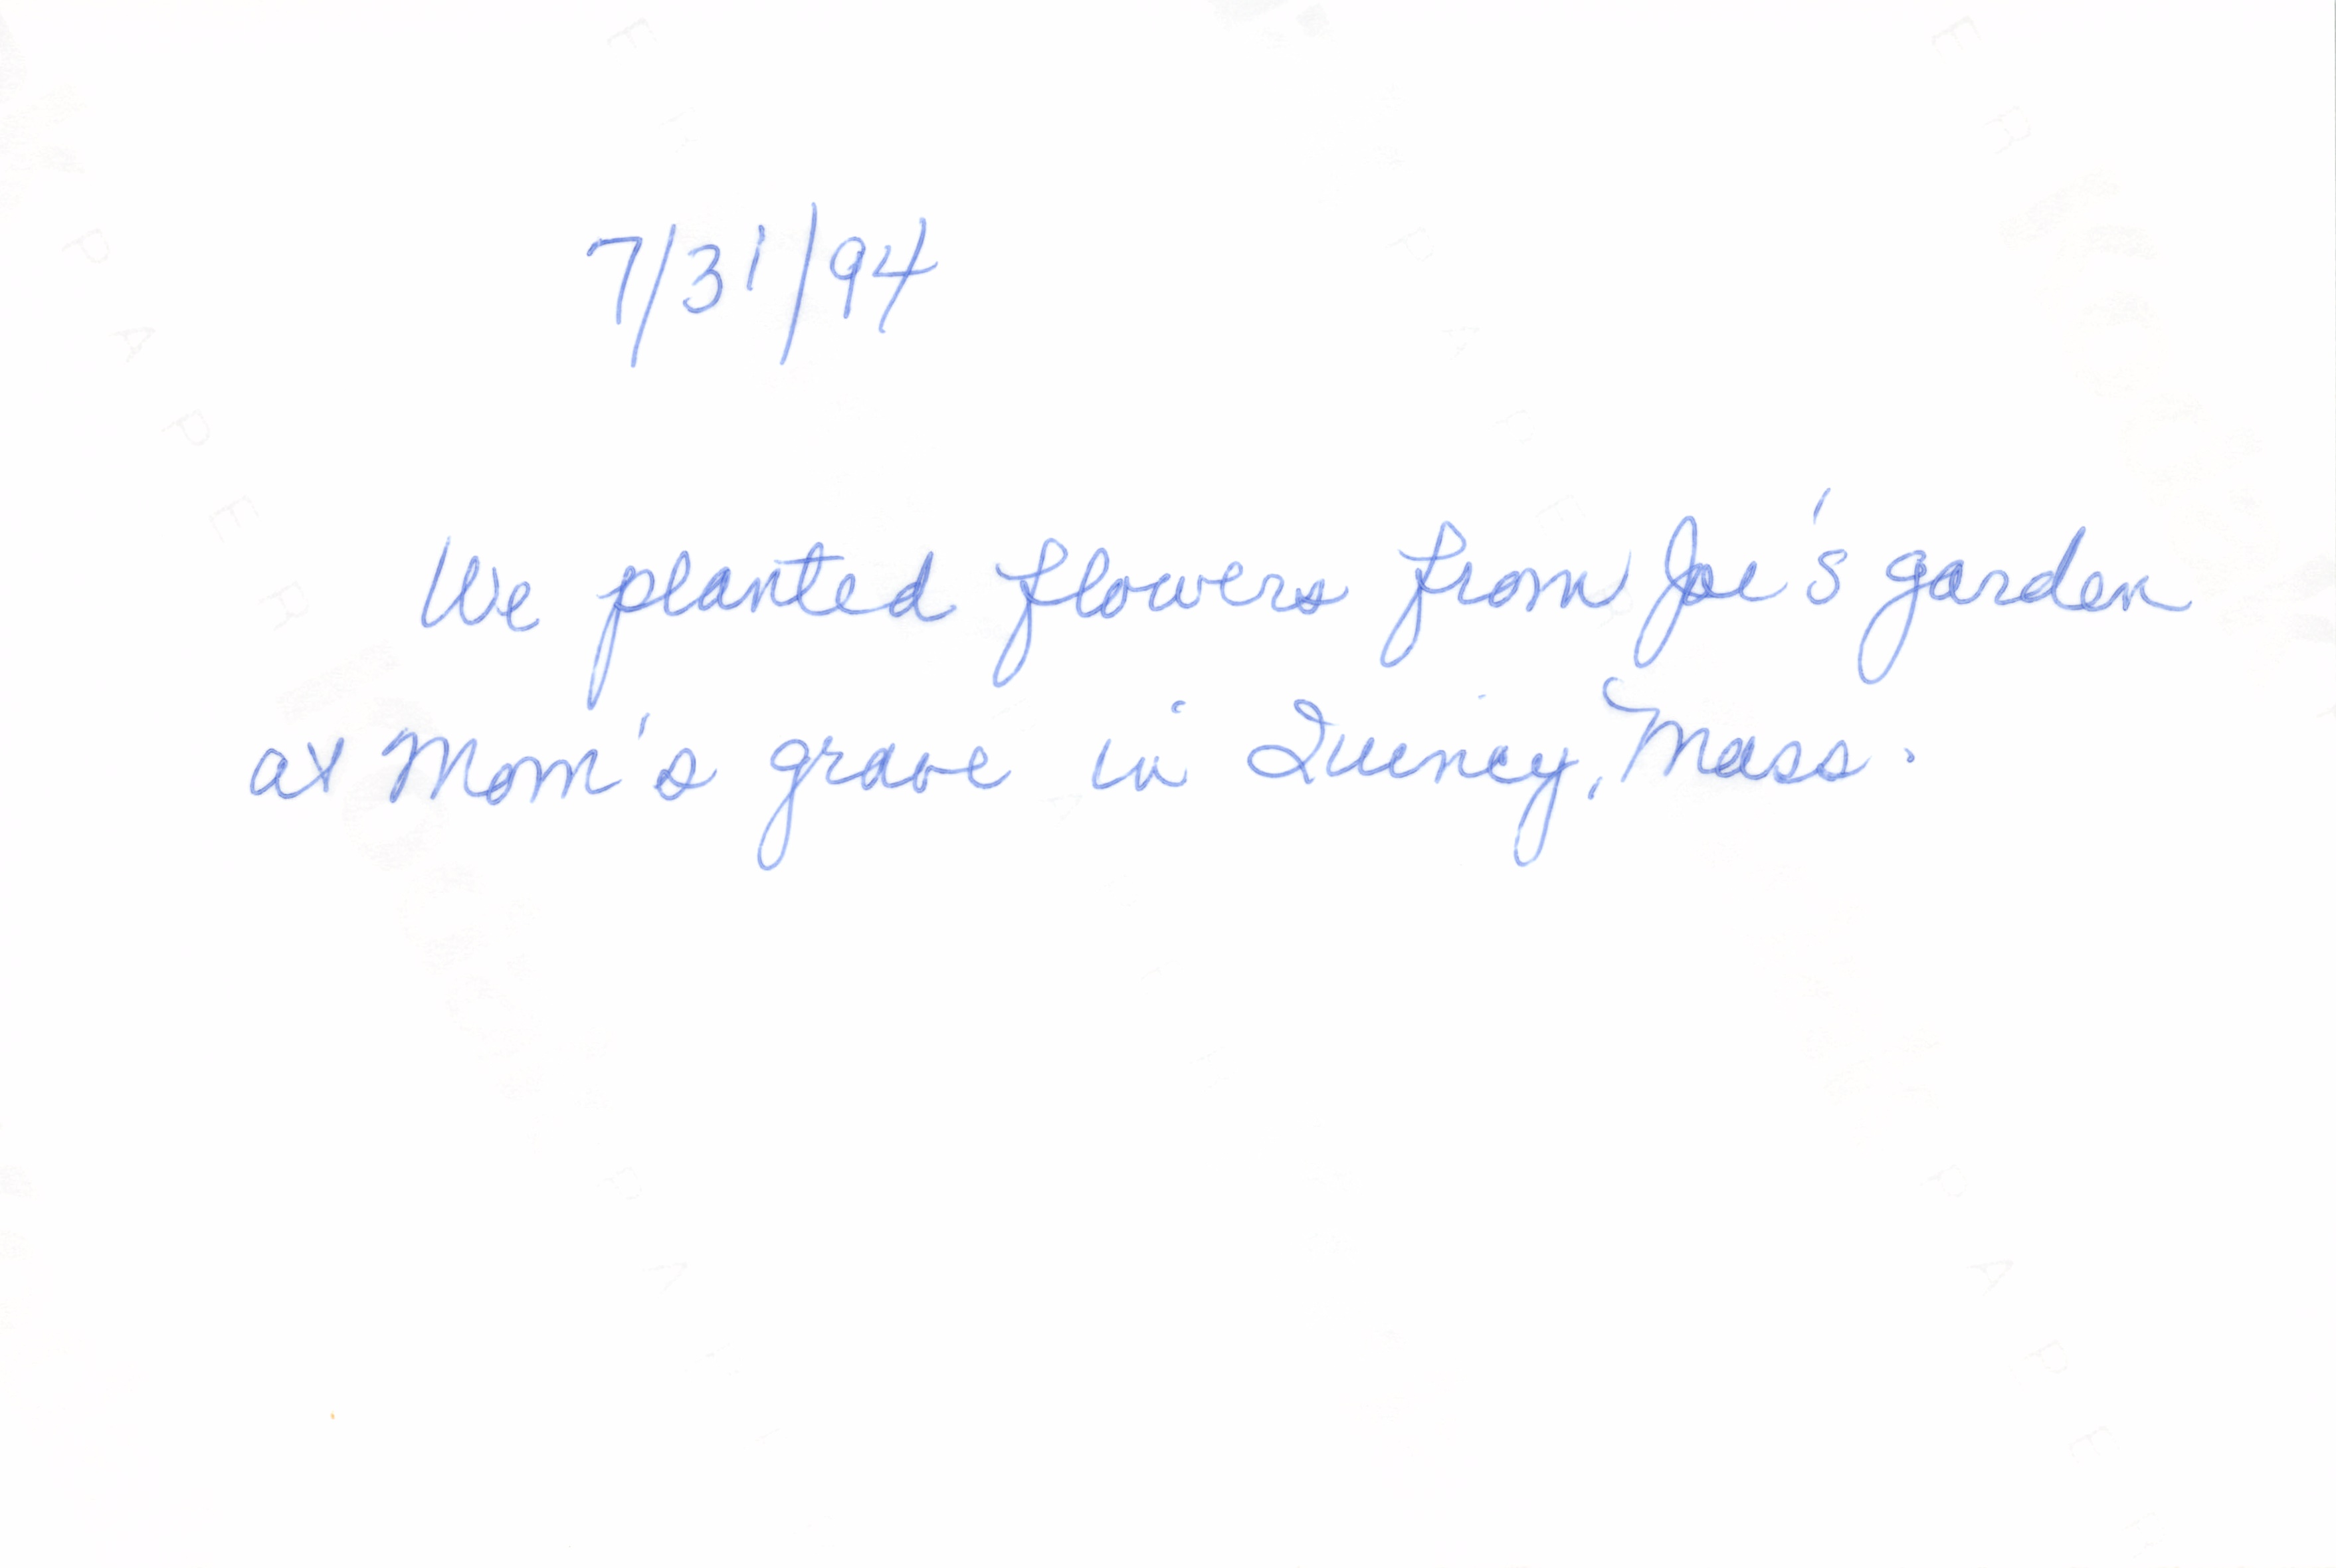 7/31/94
We planted flowers from Joe's garden
at Mom's grave in Quincy, Mass.